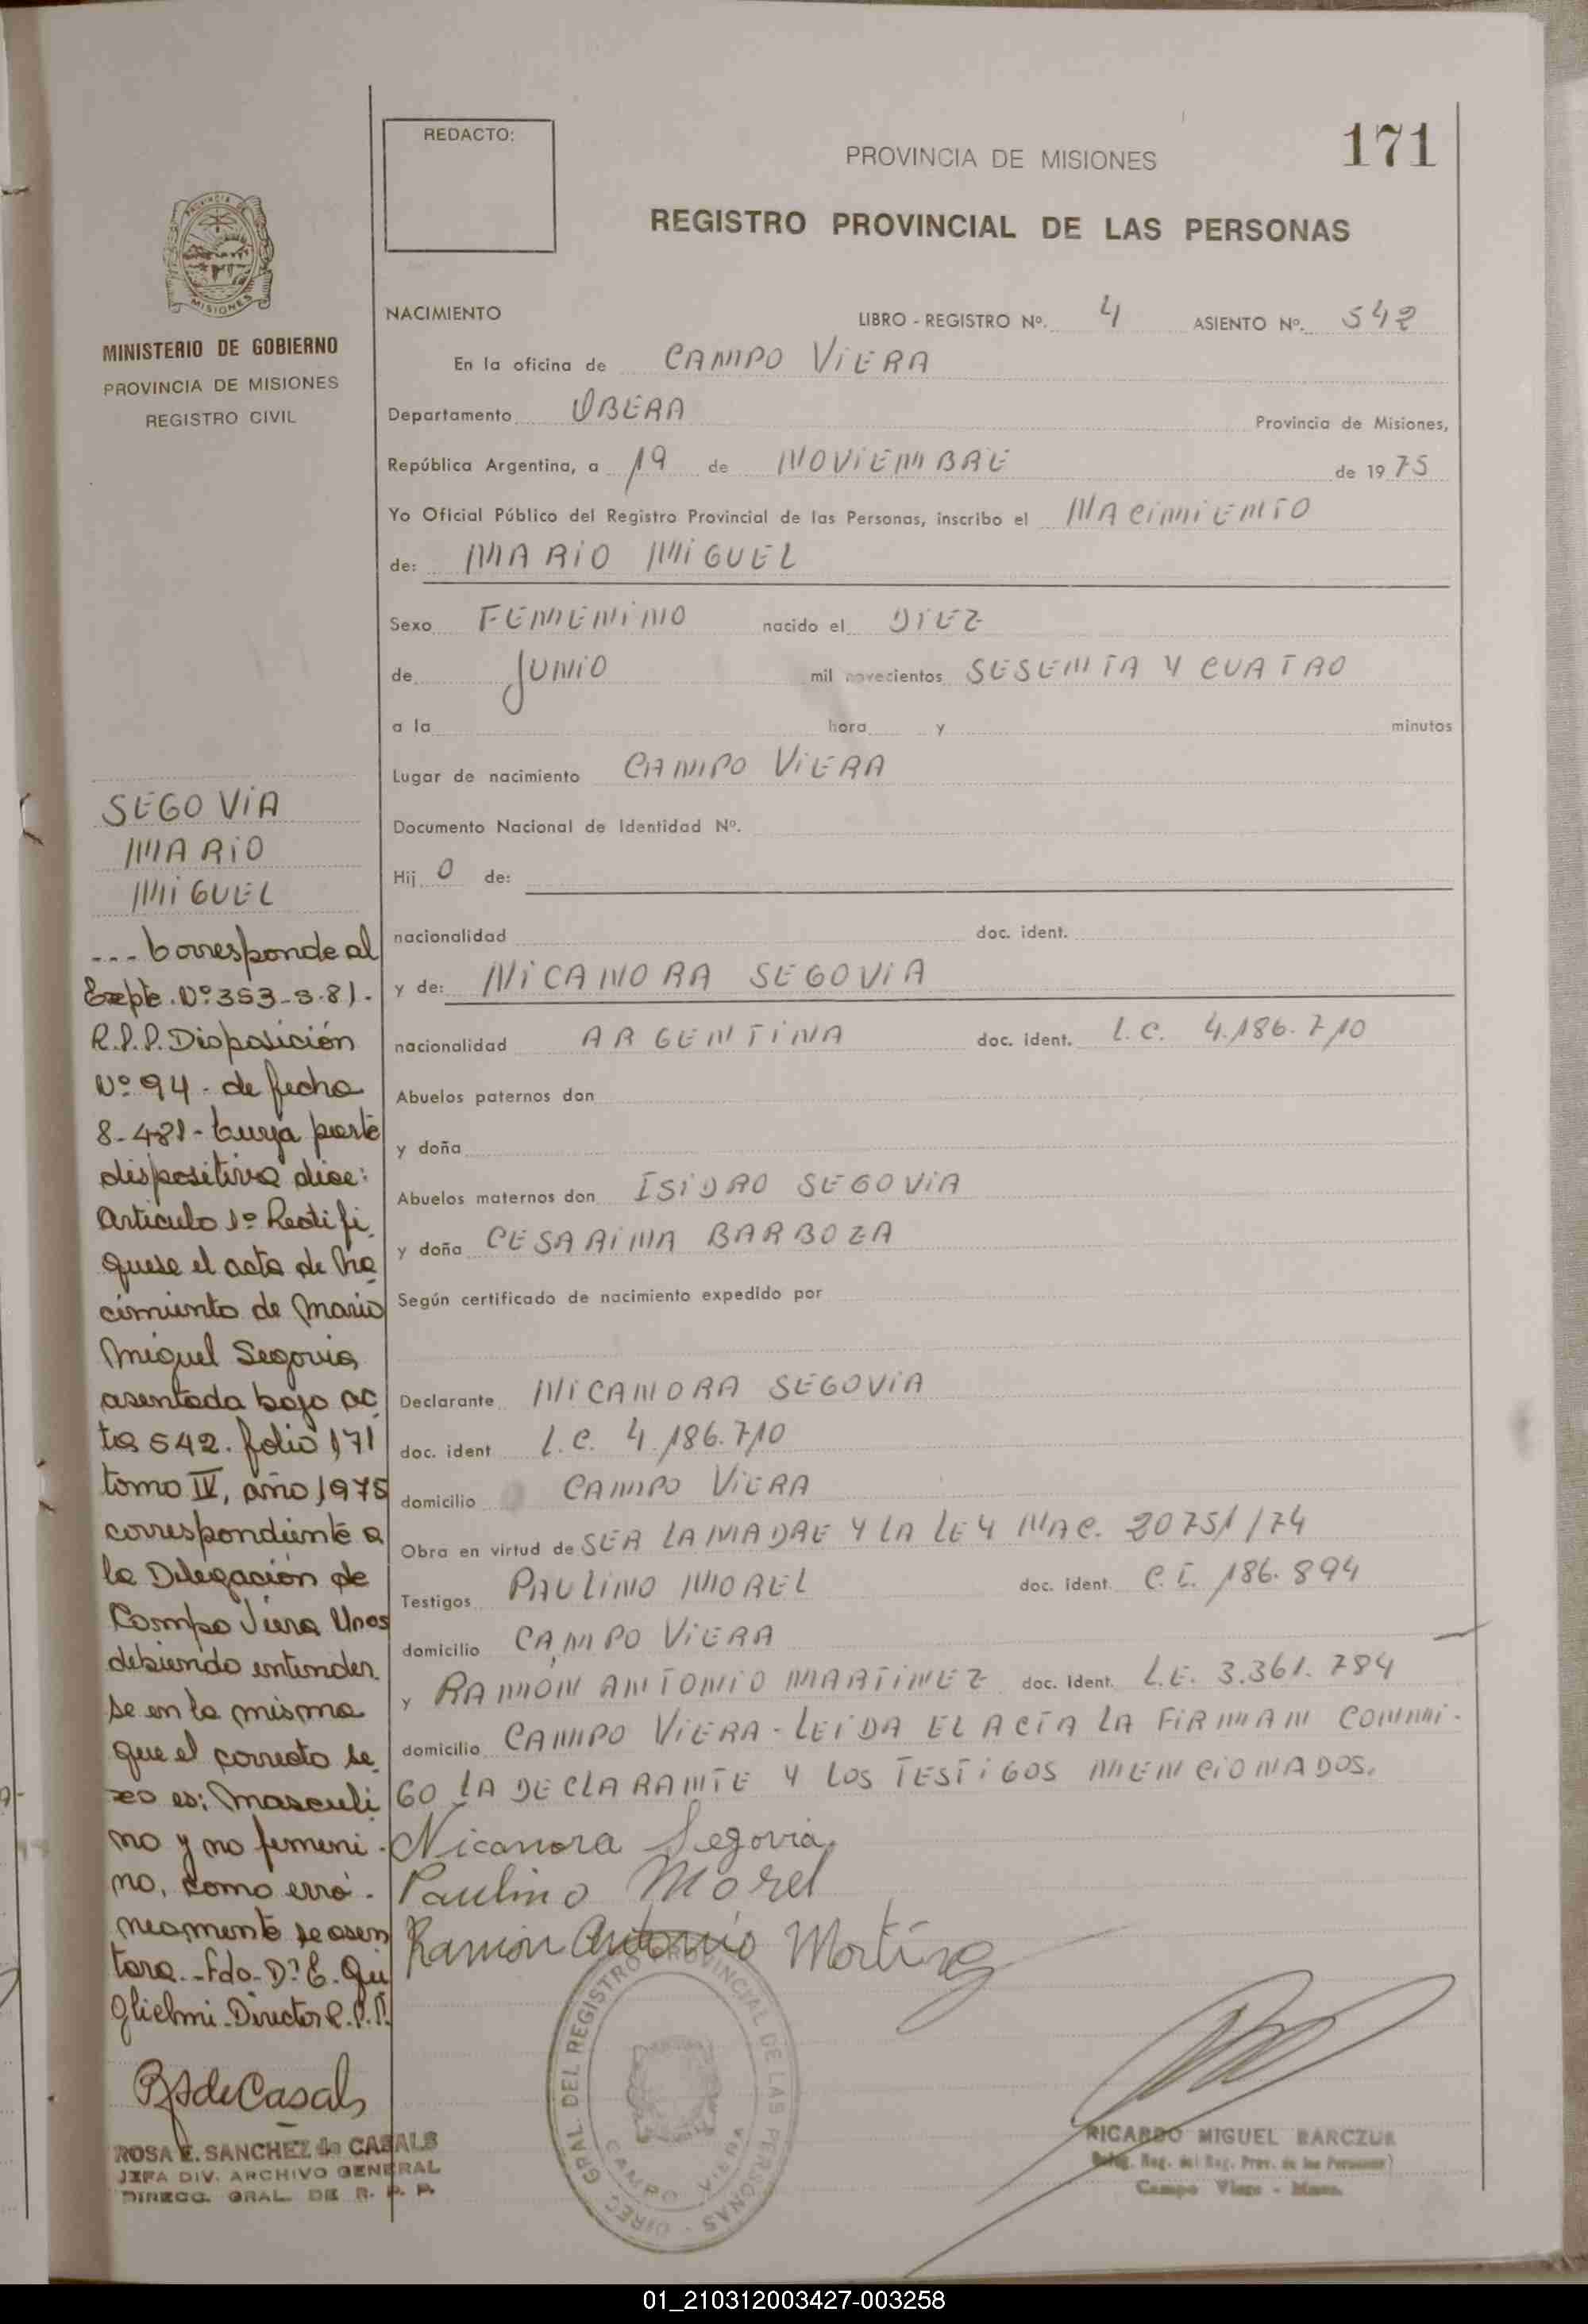 REDACTO:
PROVINCIA DE MISIONES
171
REGISTRO PROVINCIAL DE LAS PERSONAS
PROVINCIA DE
MISIONES
MINISTERIO DE GOBIERNO
PROVINCIA DE MISIONES
REGISTRO CIVIL
NACIMIENTO
LIBRO - REGISTRO Nº. 4 ASIENTO Nº. 542
En la oficina de CAMPO VIERA
Departamento OBERA Provincia de Misiones,
República Argentina, a 19 de NOVIEMBRE de 1975
Yo Oficial Público del Registro Provincial de las Personas, inscribo el NACIMIENTO
de: MARIO MIGUEL
Sexo FEMENINO nacido el DIEZ
de JUNIO mil novecientos SESENTA Y CUATRO
a la hora y minutos
Lugar de nacimiento CAMPO VIERA
Documento Nacional de Identidad Nº.
Hij O de:
nacionalidad doc. ident.
y de: NICANORA SEGOVIA
nacionalidad ARGENTINA doc. ident. L.C. 4.186.710
Abuelos paternos don
y doña
Abuelos maternos don ISIDRO SEGOVIA
y doña CESARINA BARBOZA
Según certificado de nacimiento expedido por
Declarante NICANORA SEGOVIA
doc. ident L.C. 4.186.710
domicilio CAMPO VIERA
Obra en virtud de SER LA MADRE Y LA LEY NAC. 20751/74
Testigos PAULINO MOREL doc. ident. C.I. 186.894
domicilio CAMPO VIERA
y RAMÓN ANTONIO MARTINEZ doc. Ident. L.E. 3.361.784
domicilio CAMPO VIERA - LEIDA EL ACTA LA FIRMAN CONMI-
GO LA DECLARANTE Y LOS TESTIGOS MENCIONADOS.
Nicanora Segovia
Paulino Morel
Ramon Antonio Martínez
SEGOVIA
MARIO
MIGUEL
--- Corresponde al
Expte. Nº 353-S-81-
R.P.P. Disposición
Nº 94 - de fecha
8-481- Cuya parte
dispositiva dice:
Artículo 1º Rectifi
quese el acta de Na
cimiento de Mario
Miguel Segovia,
asentada bajo ac
ta 542. folio 171
tomo IV, año 1975
correspondiente a
la Delegación de
Campo Viera Mnes
debiendo entender
se en la misma
que el correcto se
xo es: Masculi
no y no femeni -
no, como erró -
neamente se asen
tara. - Fdo - Dr E. Gu
glielmi - Director R.P.P.
RSdeCasals
ROSA E. SANCHEZ de CASALS
JEFA DIV. ARCHIVO GENERAL
DIRECC. GRAL. DE R. P. P.
DIREC. GRAL. DEL REGISTRO PROVINCIAL DE LAS PERSONAS
CAMPO VIERA
RICARDO MIGUEL BARCZUK
Deleg. Reg. del Reg. Prov. de las Personas
Campo Viera - Mnes.
01_210312003427-003258